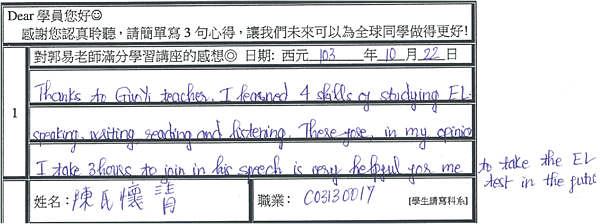 Dear 學員您好☺
感謝您認真聆聽，請簡單寫 3 句心得，讓我們未來可以為全球同學做得更好!
對郭易老師滿分學習講座的感想◎ 日期: 西元 103 年 10 月 22 日
1
Thanks to GuoYi teacher. I learned 4 skills of studying EL:
speaking, writing reading and listening. Therefore, in my opinion
I take 3 hours to join in his speech is very helpful for me to take the EL
test in the
姓名: 陳氏懷 職業: C03130017 [學生請寫科系]